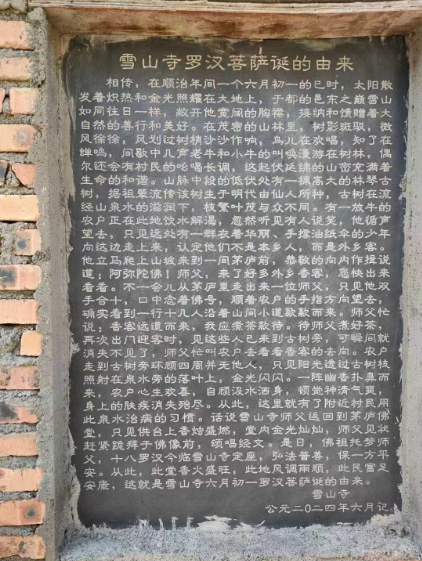 雪山寺罗汉菩萨诞的由来
相传，在顺治年间一个六月初一的巳时，太阳散
发着炽热和金光照耀在大地上，于都的邑东之巅雪山
如同往日一样，敞开他宽阔的胸襟，接纳和馈赠着大
自然的善行和美好。在茂密的山林里，树影斑驳，微
风徐徐，风划过树梢沙沙作响，鸟儿在欢唱，知了在
蝉鸣，间歇中几声老牛和小牛的叫唤漫游在树林，偶
尔还会有村民的吆喝长调，这起伏延绵的山峦充满着
生命的和谐。山脉中段的低伏处有一棵高大的林琴古
树，据祖辈流传该树生于明代由仙人所种，古树在流
经山泉水的滋润下，枝繁叶茂与众不同。有一放牛的
农户正在此地饮水解渴，忽然听见有人说笑，他循声
望去，只见远处有一群衣着华丽、手撑油纸伞的少年
向这边走上来，认定他们不是本乡人，而是外乡客。
他立马爬上山坡来到一间茅庐前，恭敬的向内作揖说
道：阿弥陀佛！师父，来了好多外乡香客，您快出来
看看。不一会儿从茅庐里走出来一位师父，只见他双
手合十，口中念着佛号，顺着农户的手指方向望去，
确实看到一行十几人沿着山间小道款款而来。师父忙
说：香客远道而来，我应煮茶款待。待师父煮好茶，
再次出门迎客时，见这些人已来到古树旁，可瞬间就
消失不见了，师父忙叫农户去看看香客的去向。农户
走到古树旁环顾四周并无他人，只见阳光透过古树枝
照射在泉水旁的落叶上，金光闪闪。一阵幽香扑鼻而
来，农户心生欢喜，自顾汲水洒身，顿觉神清气爽，
身上的肤疾消失殆尽。从此，这里就有了附近村民用
此泉水治病的习惯。话说雪山寺师父返回到茅庐佛
堂，只见供台上香烛盛燃，堂内金光灿灿，师父见状
赶紧跪拜于佛像前，颂唱经文。是日，佛祖托梦师
父，十八罗汉今临雪山寺定座，弘法普善，保一方平
安。从此，此堂香火盛旺，此地风调雨顺，此民富足
安康，这就是雪山寺六月初一罗汉菩萨诞的由来。
雪山寺
公元二〇二四年六月记